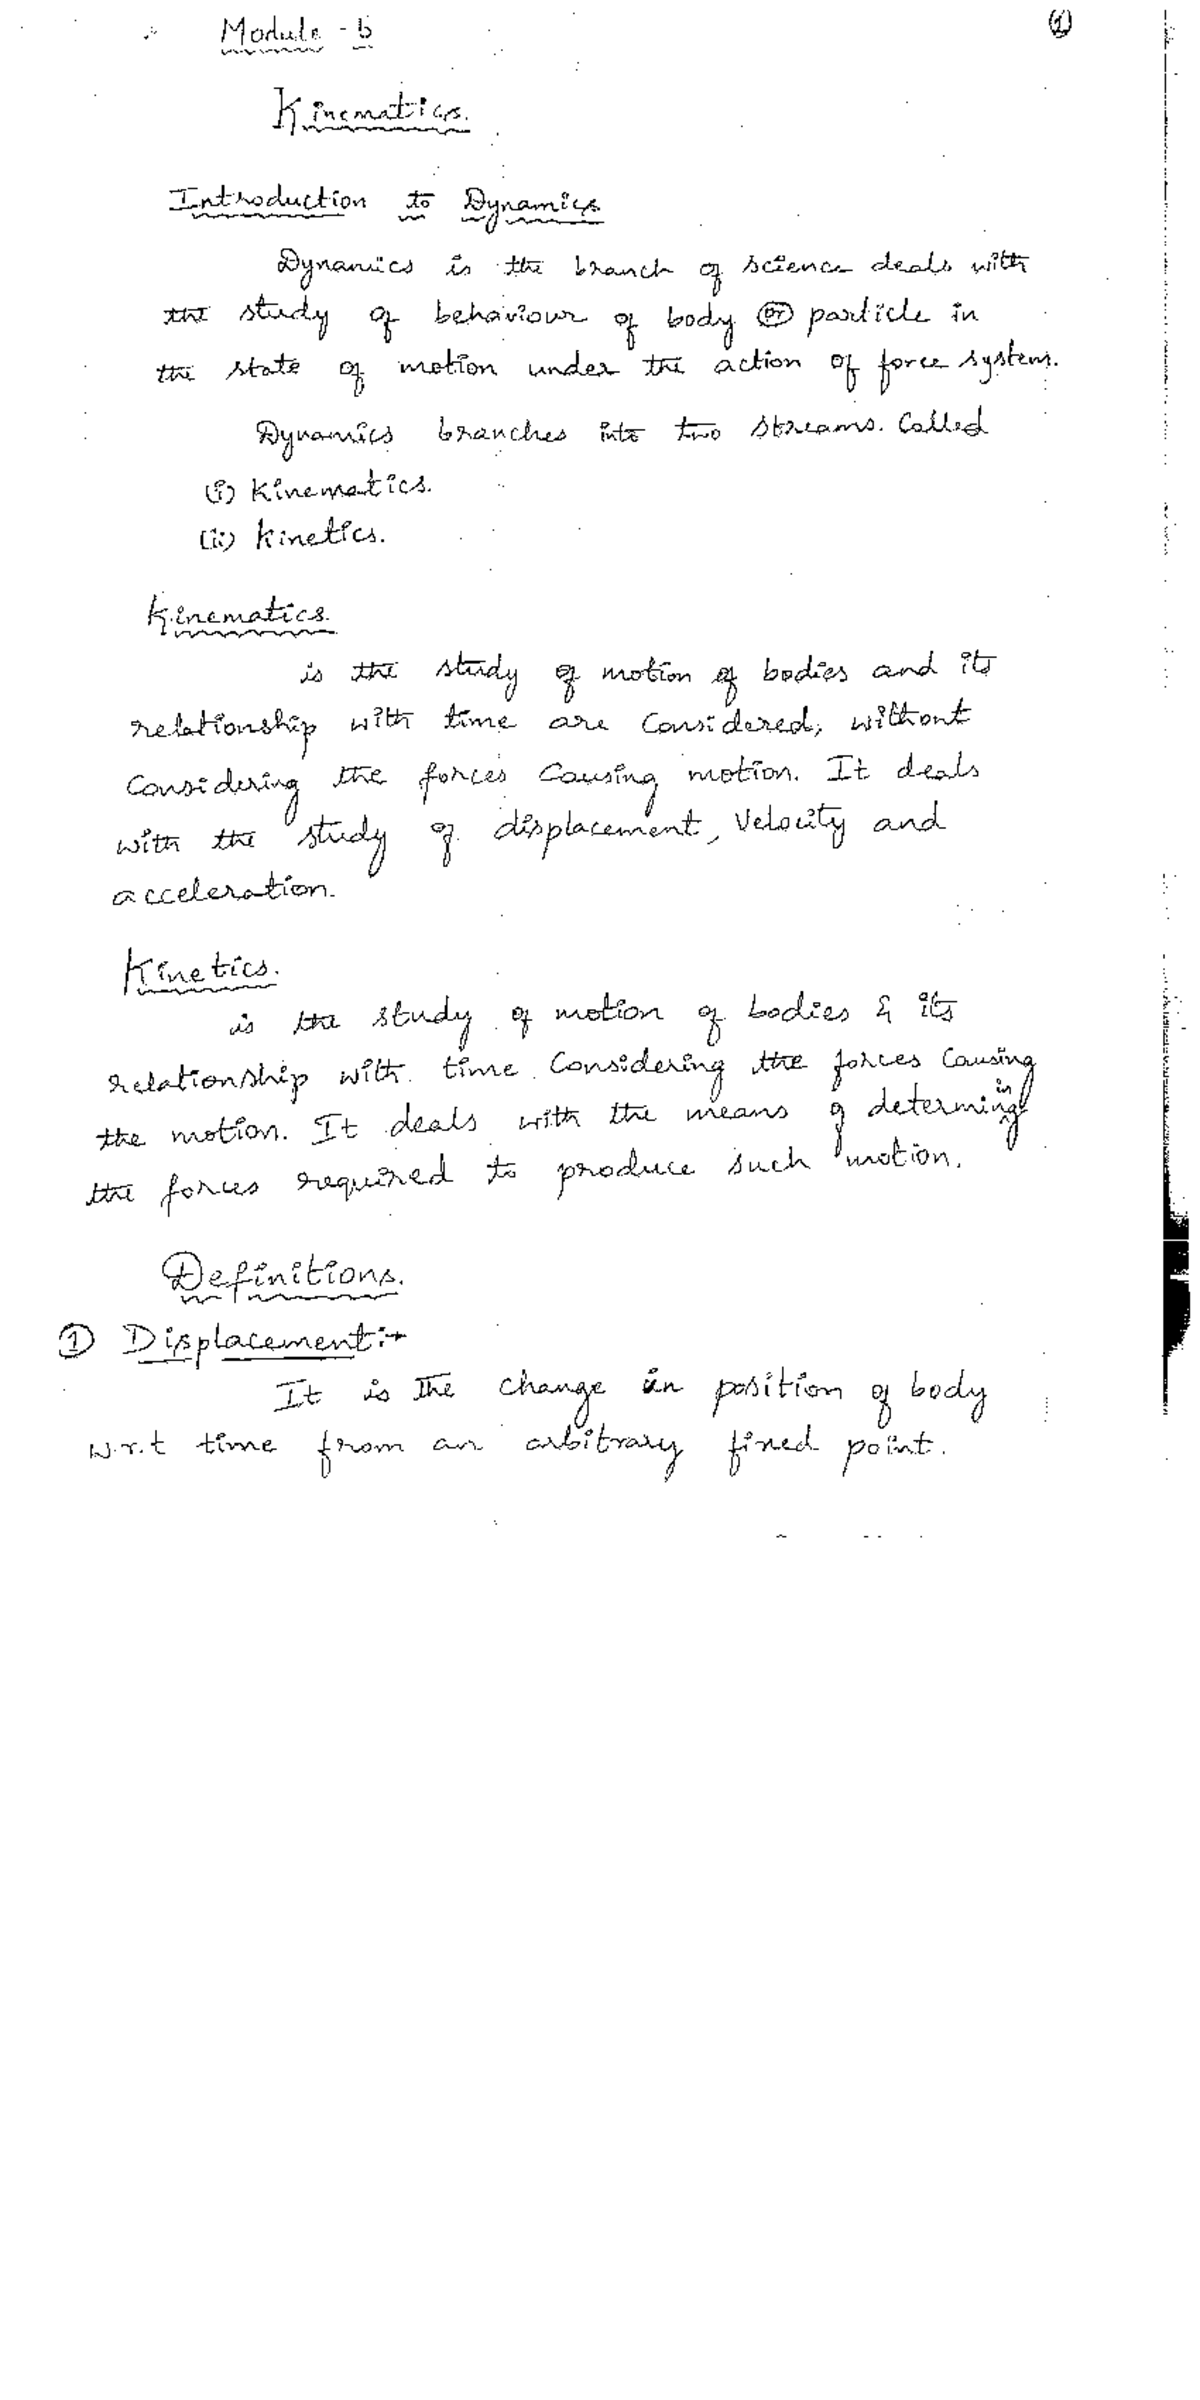 Module - 5
①
Kinematics.
Introduction to Dynamics
Dynamics is the branch of science deals with
the study of behaviour of body or particle in
the state of motion under the action of force system.
Dynamics branches into two streams. Called
(i) Kinematics.
(ii) Kinetics.
Kinematics.
is the study of motion of bodies and its
relationship with time are Considered, without
Considering the forces Causing motion. It deals
with the study of displacement, Velocity and
acceleration.
Kinetics.
is the study of motion of bodies & its
relationship with time Considering the forces Causing
the motion. It deals with the means of determining
the forces required to produce such motion.
Definitions.
① Displacement:-
It is the change in position of body
w.r.t time from an arbitrary fixed point.